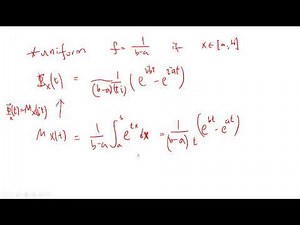 x uniform f = 1/(b-a) if x ∈ [a, b]
Φ_x(t) = 1/((b-a)(ti)) (e^{ibt} - e^{iat})
Φ_x(t) = M_x(it) ↑
M_X(t) = 1/(b-a) ∫_a^b e^{tx} dx = 1/((b-a) t) (e^{bt} - e^{at})